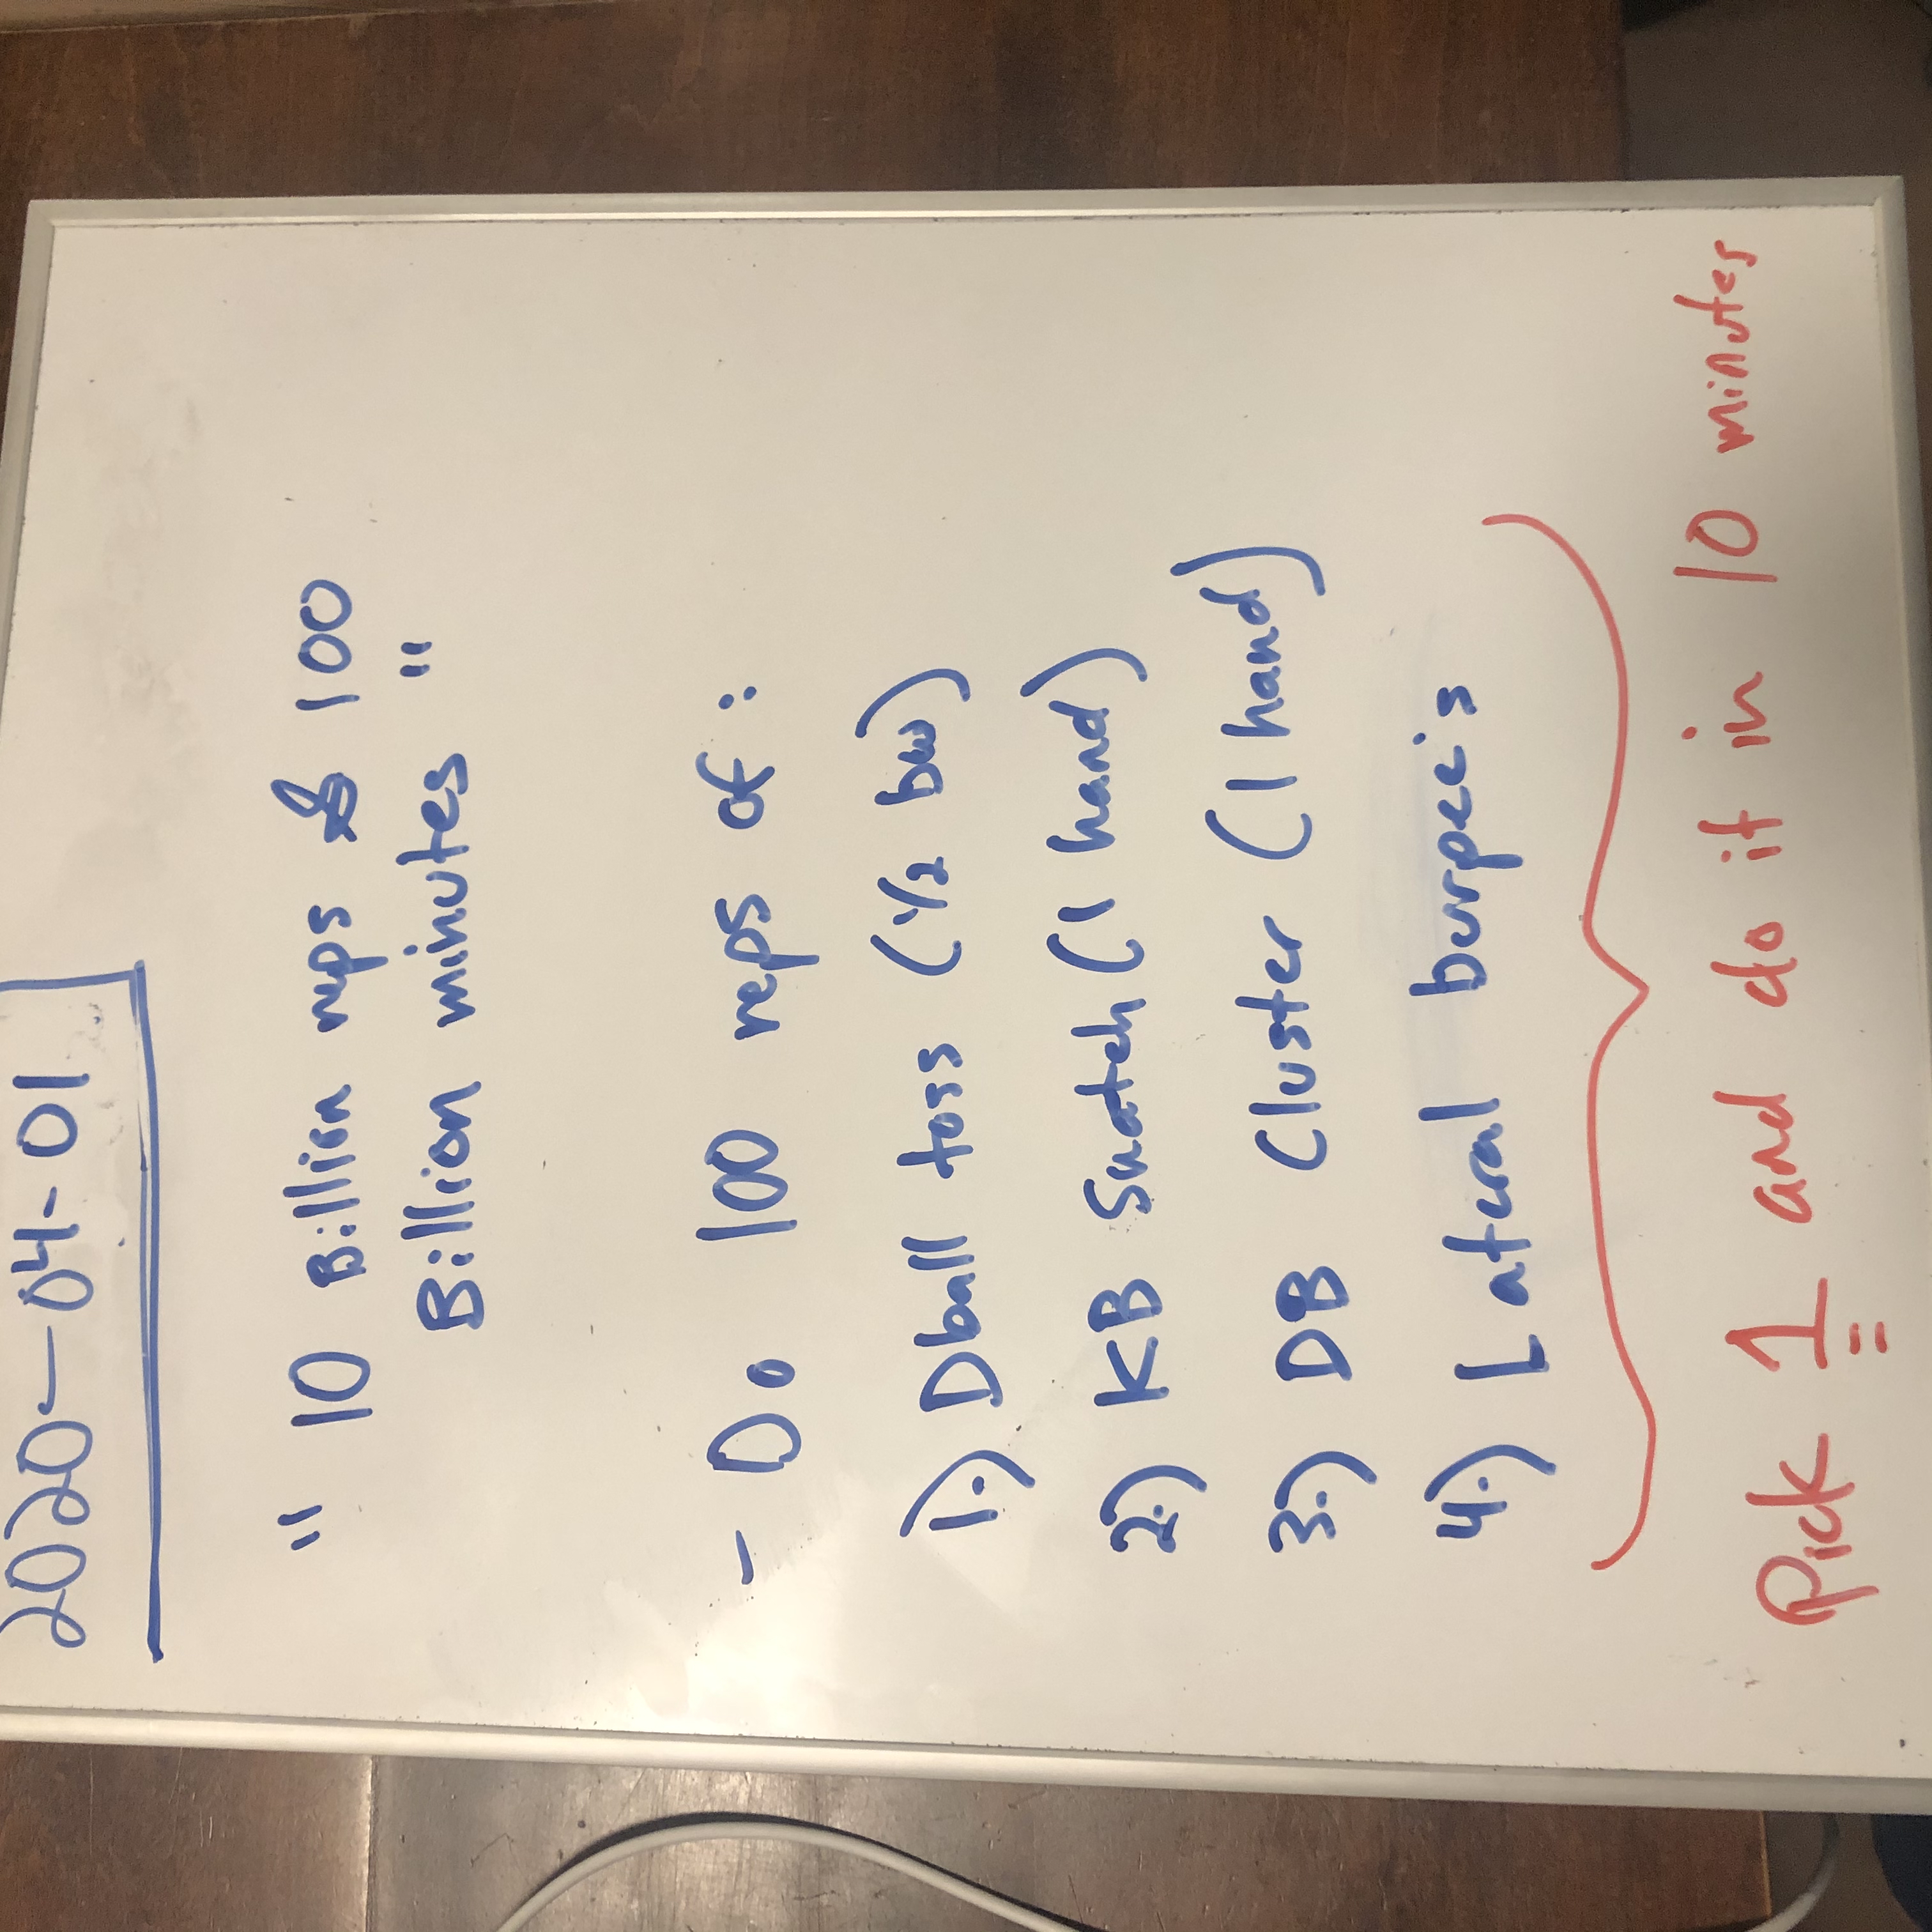 2020-04-01
" 10 Billion reps & 100
Billion minutes "
- Do 100 reps of :
1.) Dball toss (1/2 bw)
2.) KB Snatch (1 hand)
3.) DB Cluster (1 hand)
4.) Lateral burpee's
Pick 1 and do it in 10 minutes